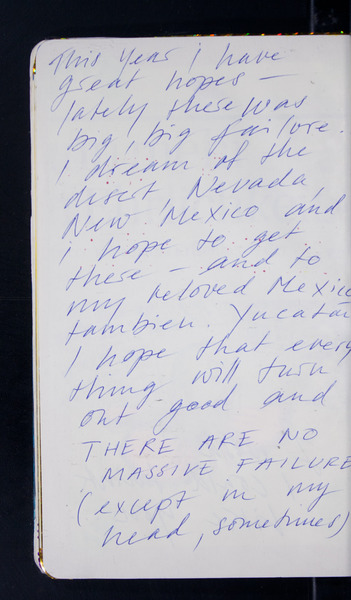 This year i have
great hopes —
lately there was
big, big failure.
I dream of the
disert Nevada,
New Mexico and
i hope to get
there — and to
my beloved Mexico
tambien. Yucatan
I hope that every
thing will turn
out good and
THERE ARE NO
MASSIVE FAILURE
(except in my
head, sometimes)